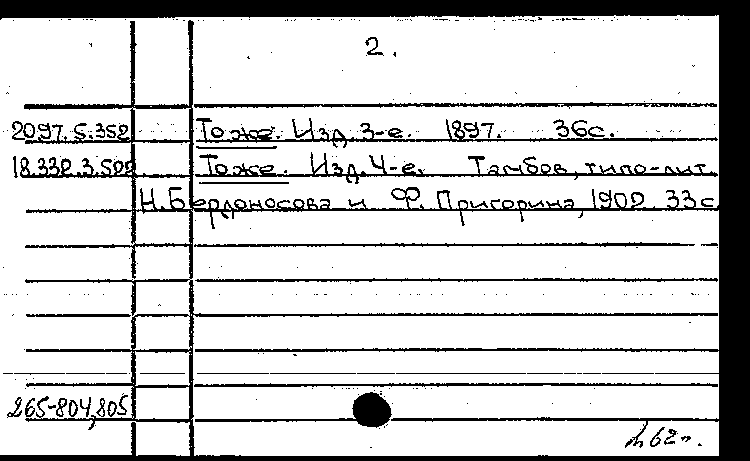 2.
2097.5.352 Тоже. Изд. 3-е. 1897. 36с.
18.332.3.502 Тоже. Изд. 4-е. Тамбов, типо-лит.
Н. Бердоносова и Ф. Пригорина, 1902. 33с
265-804,805
62